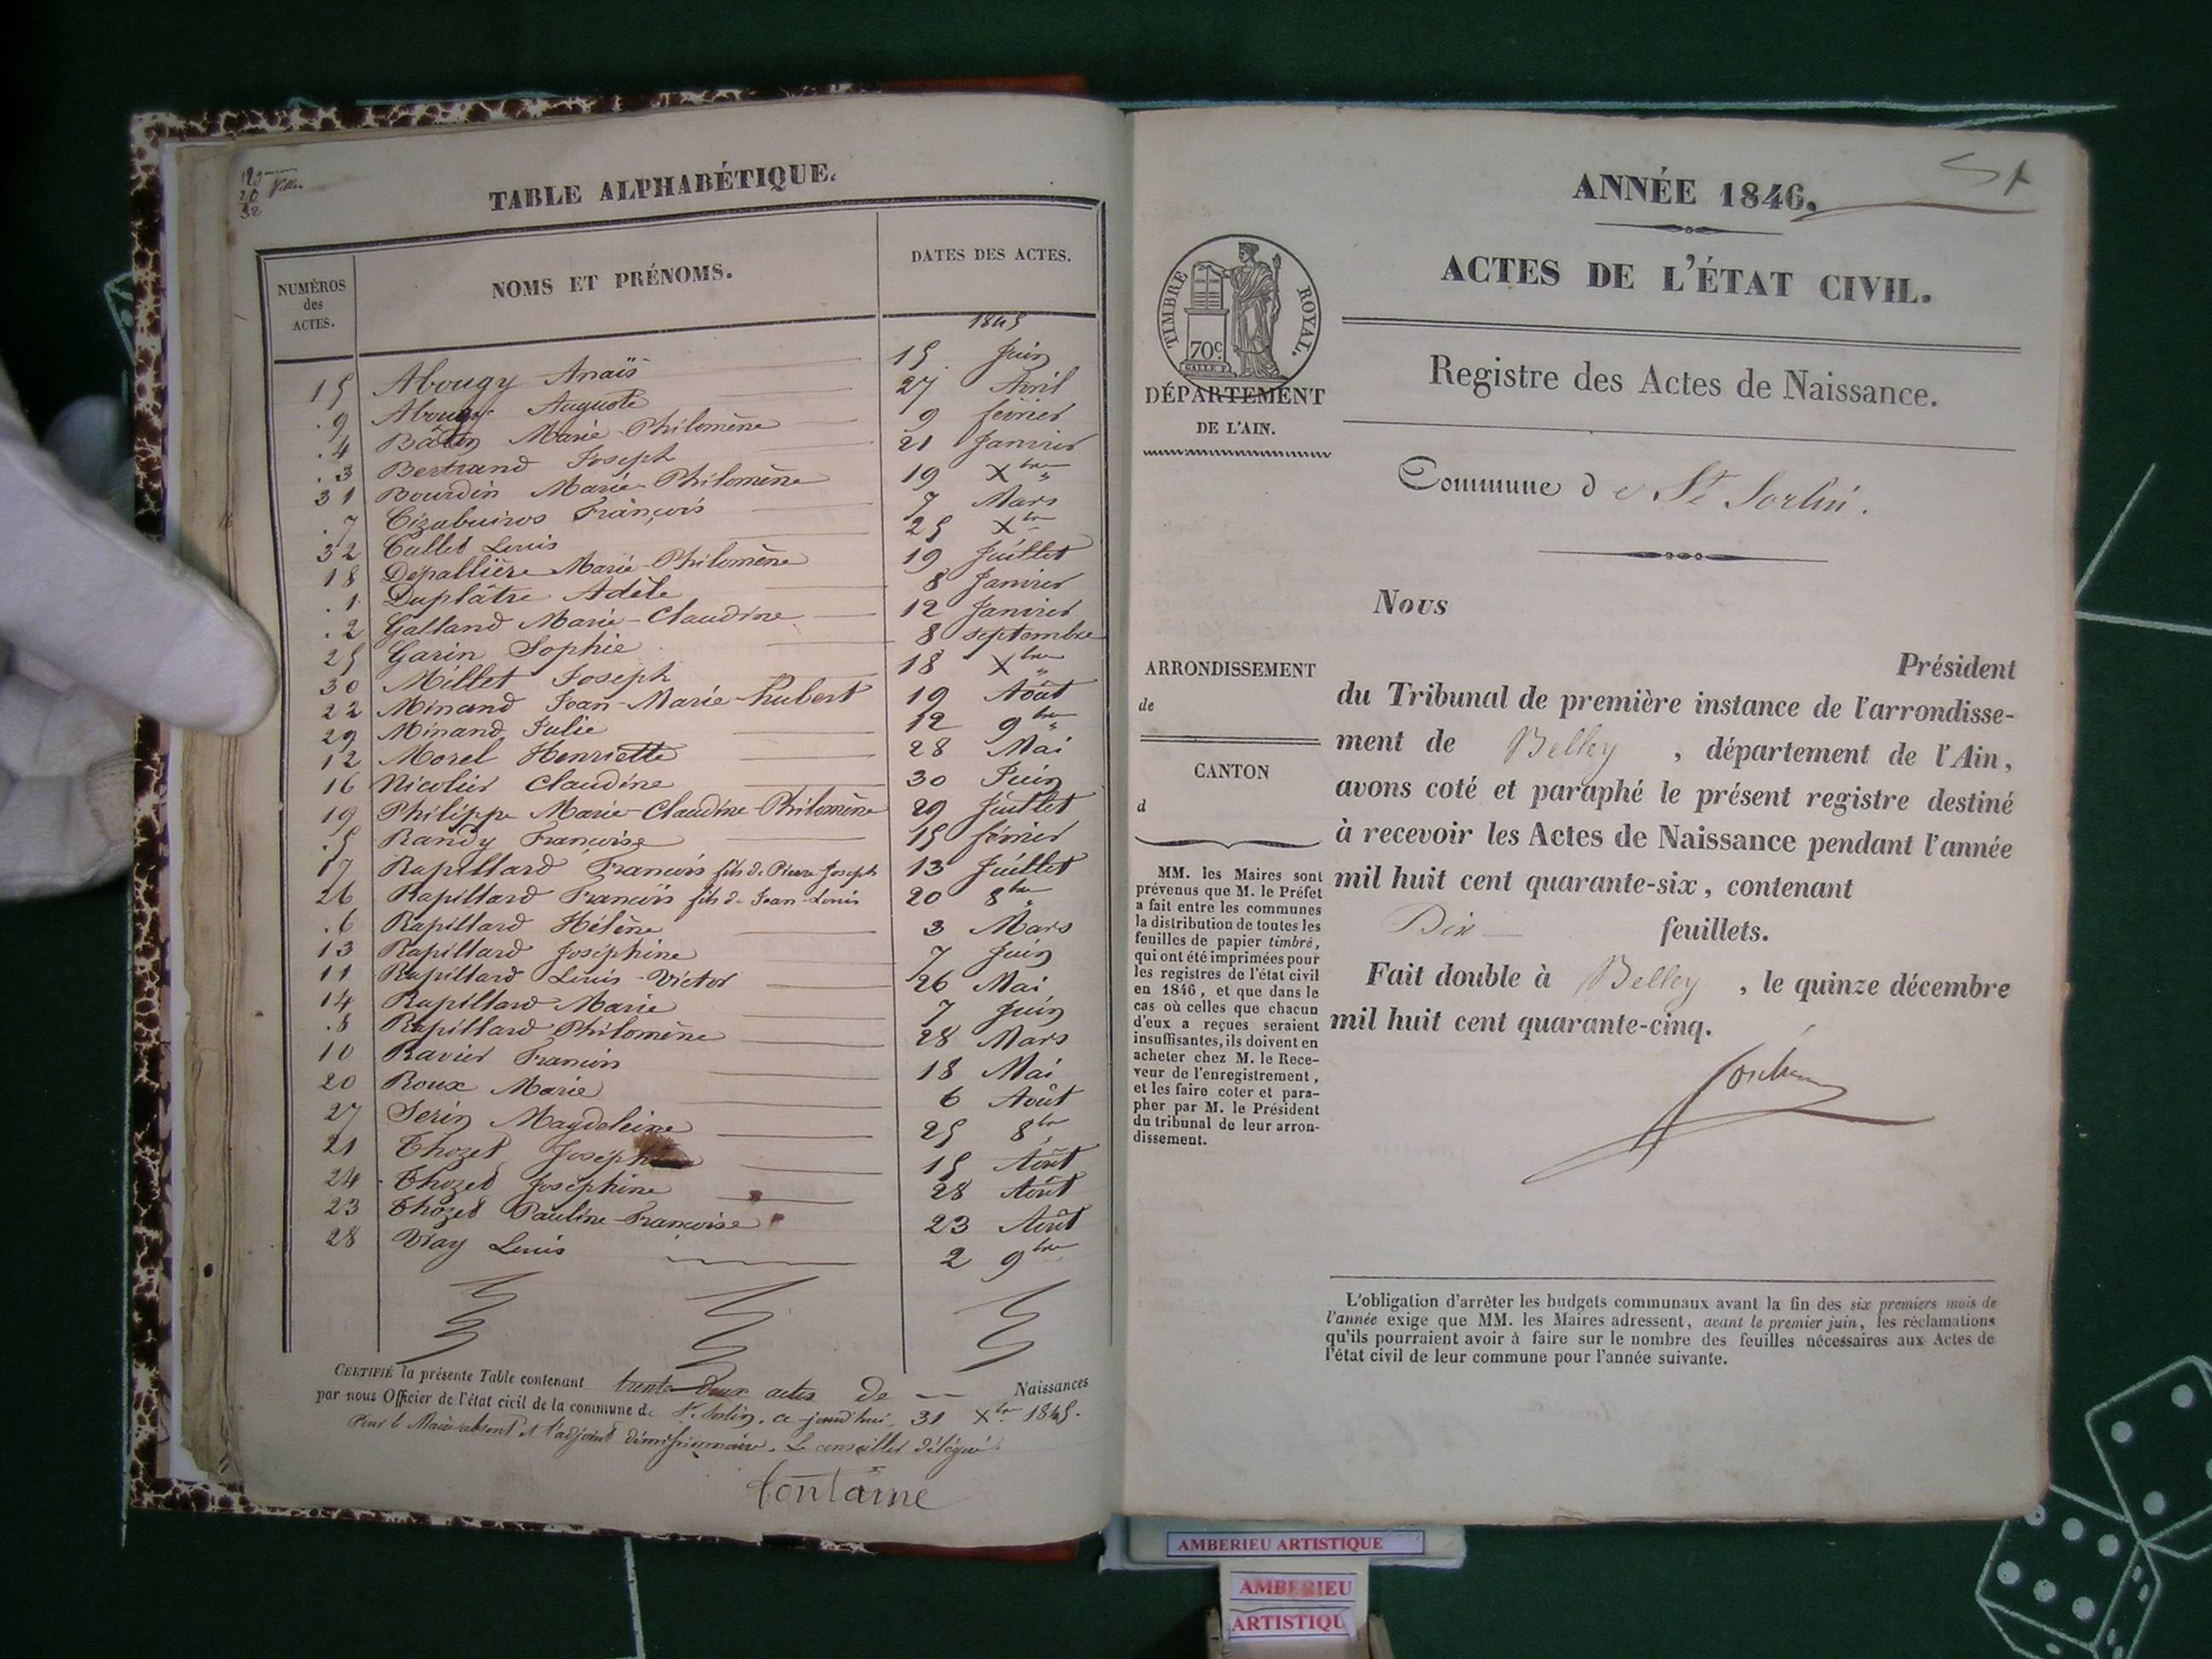 TABLE ALPHABÉTIQUE.
NUMÉROS des ACTES.
NOMS ET PRÉNOMS.
DATES DES ACTES.
1845
15 Abougy Anaïs 15 Juin
.9 Abougy Auguste 27 Avril
.4 Bâtin Marie-Philomène 9 février
.3 Bertrand Joseph 21 Janvier
31 Bourdin Marie-Philomène 19 Xbre
.7 François 7 Mars
32 Cullet Louis 25 Xbre
18 Depallière Marie-Philomène 19 Juillet
.1 Duplâtre Adèle 8 Janvier
.2 Galland Marie-Claudine 12 Janvier
25 Garin Sophie 8 septembre
30 Millet Joseph 18 Xbre
22 Minand Jean-Marie-hubert 19 Août
29 Minand Julie 12 9bre
12 Morel Henriette 28 Mai
16 Nicolier Claudine 30 Juin
19 Philippe Marie-Claudine-Philomène 29 Juillet
.5 Randy Françoise 15 février
17 Rapillard François fils de Pierre-Joseph 13 Juillet
26 Rapillard François fils de Jean-Louis 20 8bre
.6 Rapillard Hélène 3 Mars
13 Rapillard Joséphine 7 Juin
11 Rapillard Louis-Victor 26 Mai
14 Rapillard Marie 7 Juin
.8 Rapillard Philomène 28 Mars
10 Ravier François 18 Mai
20 Roux Marie 6 Août
27 Serin Magdeleine 25 8bre
21 Thozet Joseph 15 Août
24 Thozet Joséphine 28 Août
23 Thozet Pauline-Françoise 23 Août
28 Vray Louis 2 9bre
CERTIFIÉ la présente Table contenant trente-deux actes de — Naissances
par nous Officier de l'état civil de la commune de St. Sorlin, ce jourd'hui 31 Xbre 1845.
Pour le Maire absent et l'adjoint démissionnaire. Le conseiller délégué
fontaine
ANNÉE 1846.
ACTES DE L'ÉTAT CIVIL.
TIMBRE ROYAL.
70c
DÉPARTEMENT
DE L'AIN.
Registre des Actes de Naissance.
Commune de St Sorlin.
Nous
Président
du Tribunal de première instance de l'arrondisse-
ment de Belley, département de l'Ain,
avons coté et paraphé le présent registre destiné
à recevoir les Actes de Naissance pendant l'année
mil huit cent quarante-six, contenant
Dix — feuillets.
Fait double à Belley, le quinze décembre
mil huit cent quarante-cinq.
ARRONDISSEMENT
de
CANTON
d
MM. les Maires sont
prévenus que M. le Préfet
a fait entre les communes
la distribution de toutes les
feuilles de papier timbré,
qui ont été imprimées pour
les registres de l'état civil
en 1846, et que dans le
cas où celles que chacun
d'eux a reçues seraient
insuffisantes, ils doivent en
acheter chez M. le Rece-
veur de l'enregistrement,
et les faire coter et para-
pher par M. le Président
du tribunal de leur arron-
dissement.
L'obligation d'arrêter les budgets communaux avant la fin des six premiers mois de
l'année exige que MM. les Maires adressent, avant le premier juin, les réclamations
qu'ils pourraient avoir à faire sur le nombre des feuilles nécessaires aux Actes de
l'état civil de leur commune pour l'année suivante.
AMBERIEU ARTISTIQUE
AMBERIEU
ARTISTIQU